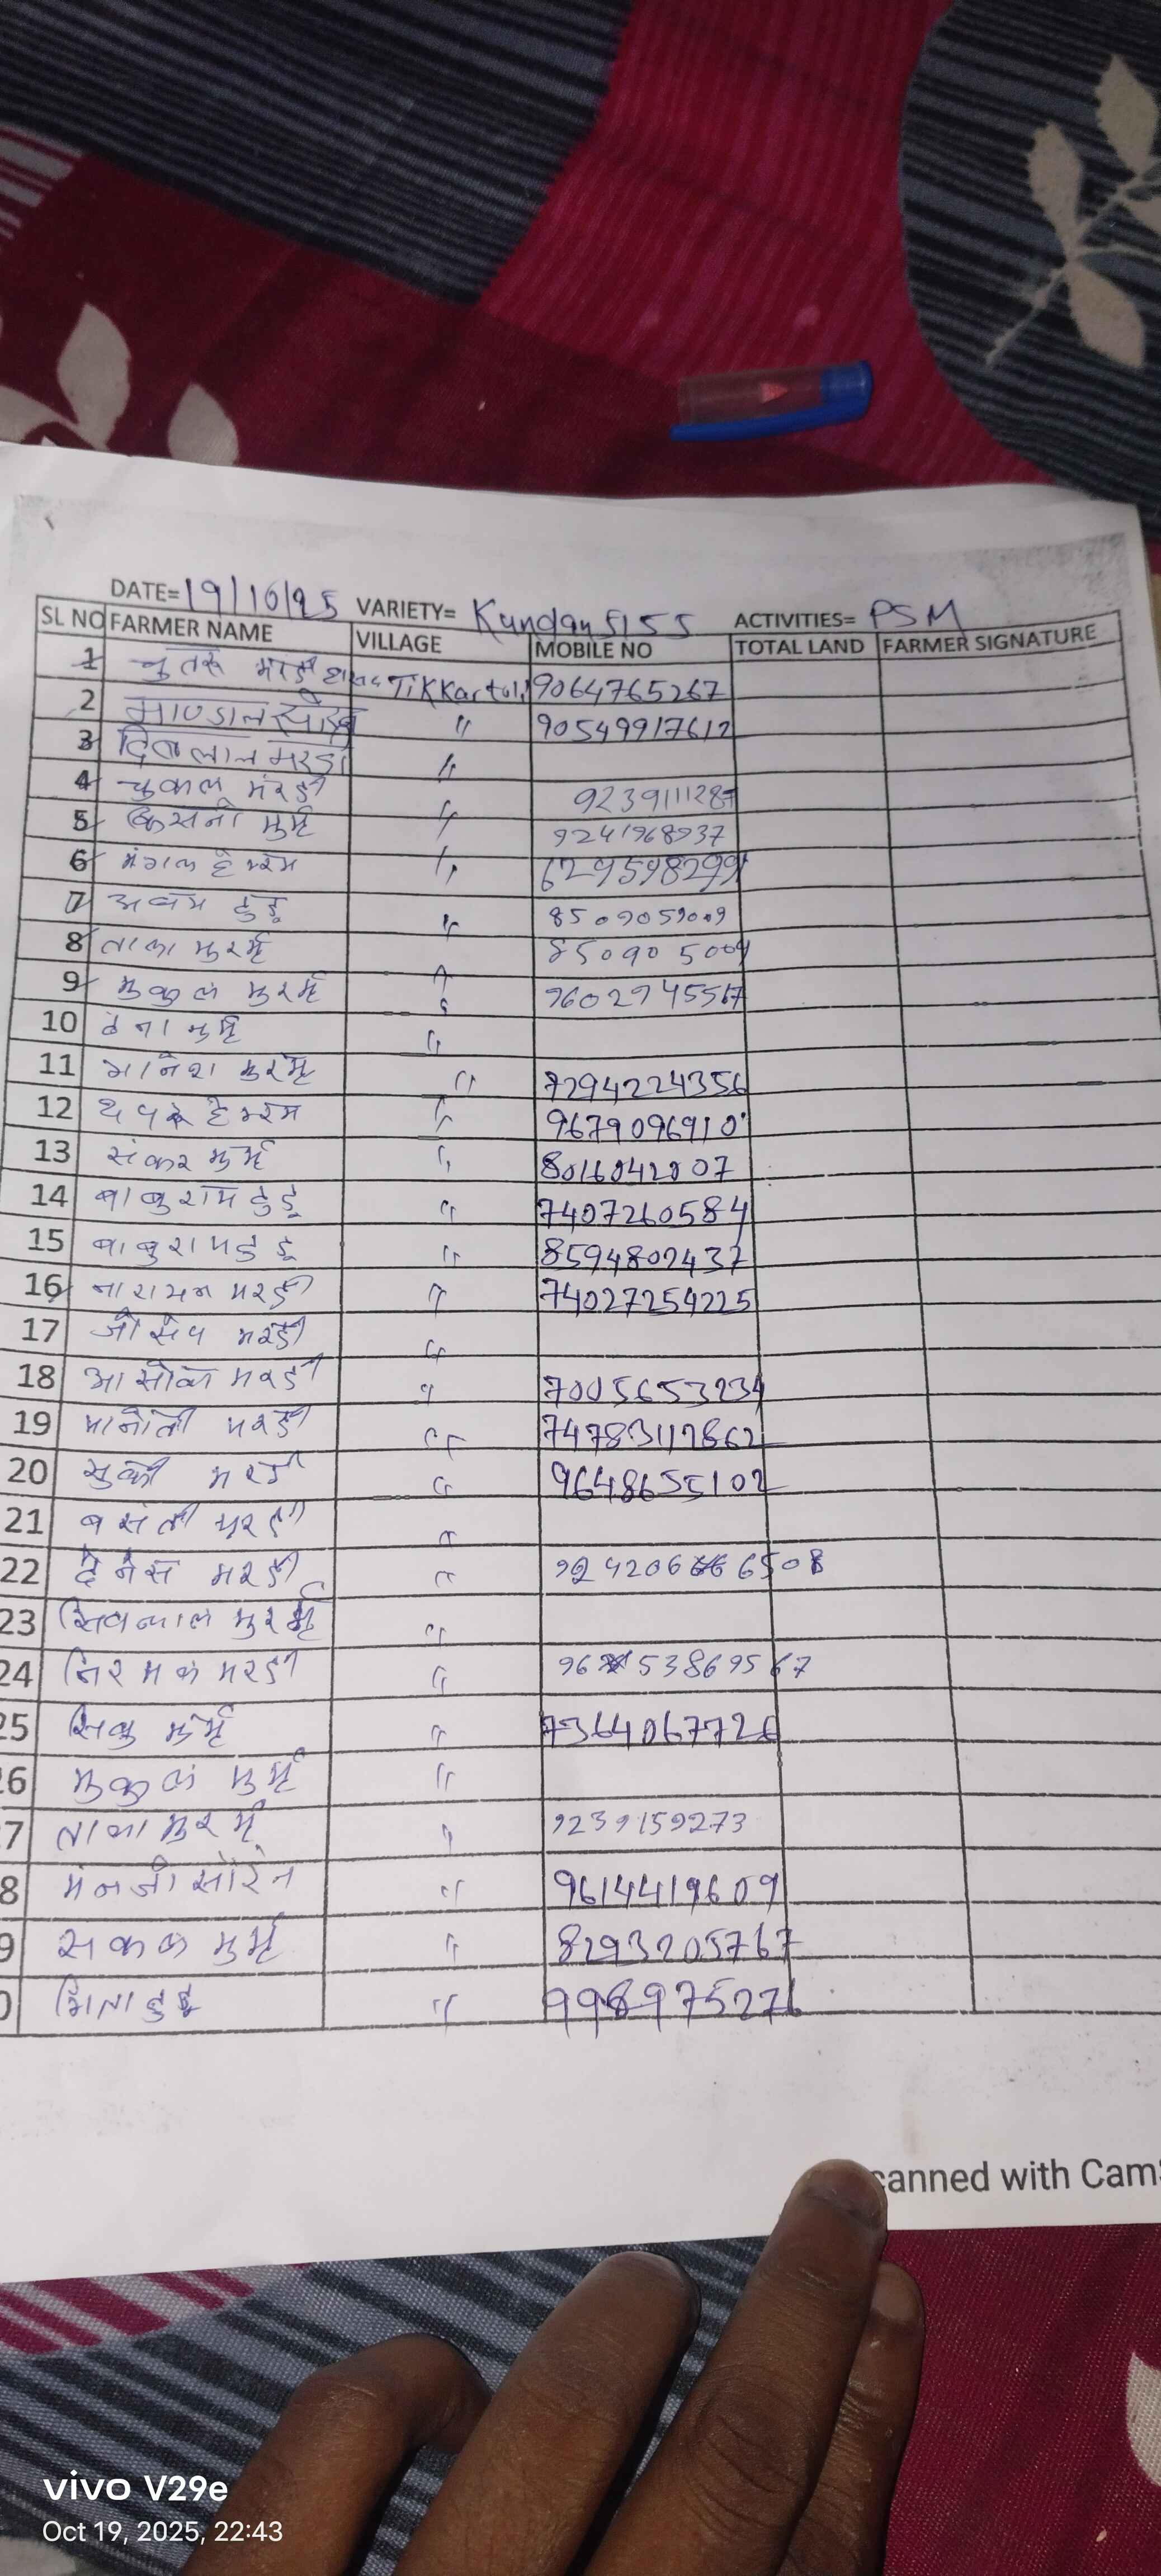 DATE= 19/10/25 VARIETY= Kundan 5155 ACTIVITIES= PSM
SL NO FARMER NAME VILLAGE MOBILE NO TOTAL LAND FARMER SIGNATURE
1 चुतरू मरडी TiKKartoli 9064765267
2 " 90549917612
3 लाल मरडी "
4 चुकाल मंरडी " 9239111287
5 किसनी मुर्मू " 9241968937
6 मंगल हेम्रम " 629598299
7 टुडू " 8509059009
8 ताला मुरर्मू " 850905009
9 मुकुल मुरर्मू " 9602945567
10 मुर्मू "
11 मुरमू " 7294224356
12 हेम्रम " 9679096910
13 संकर मुर्मू " 8016042007
14 बाबुराम टुडू " 7407260584
15 बाबुराम टुडू " 8594802437
16 नारायन मरडी " 74027254225
17 जोसेप मरडी "
18 आसोक मरडी " 7005653234
19 मरडी " 74783117862
20 सुकी मरडी " 9648655102
21 बसंती मुरमू "
22 मरडी " 924206 6508
23 मुरर्मू "
24 मरडी " 96 53869567
25 मुर्मू " 7364067726
26 मुकुल मुर्मू "
7 ताला मुरमू " 9239159273
8 मंनजी सोरेन " 9614419609
9 मुर्मू " 8293205767
टुडू " 998975276
canned with Cam
vivo V29e
Oct 19, 2025, 22:43